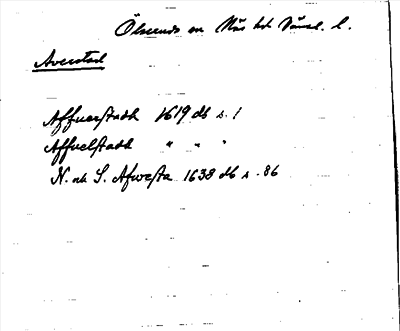 Ölserud sn Näs hd Värml. l.
Averstad
Affuerstadh 1619 db s. 1
Affuelstadh " " "
N. ok S. Afwesta 1638 db s. 86